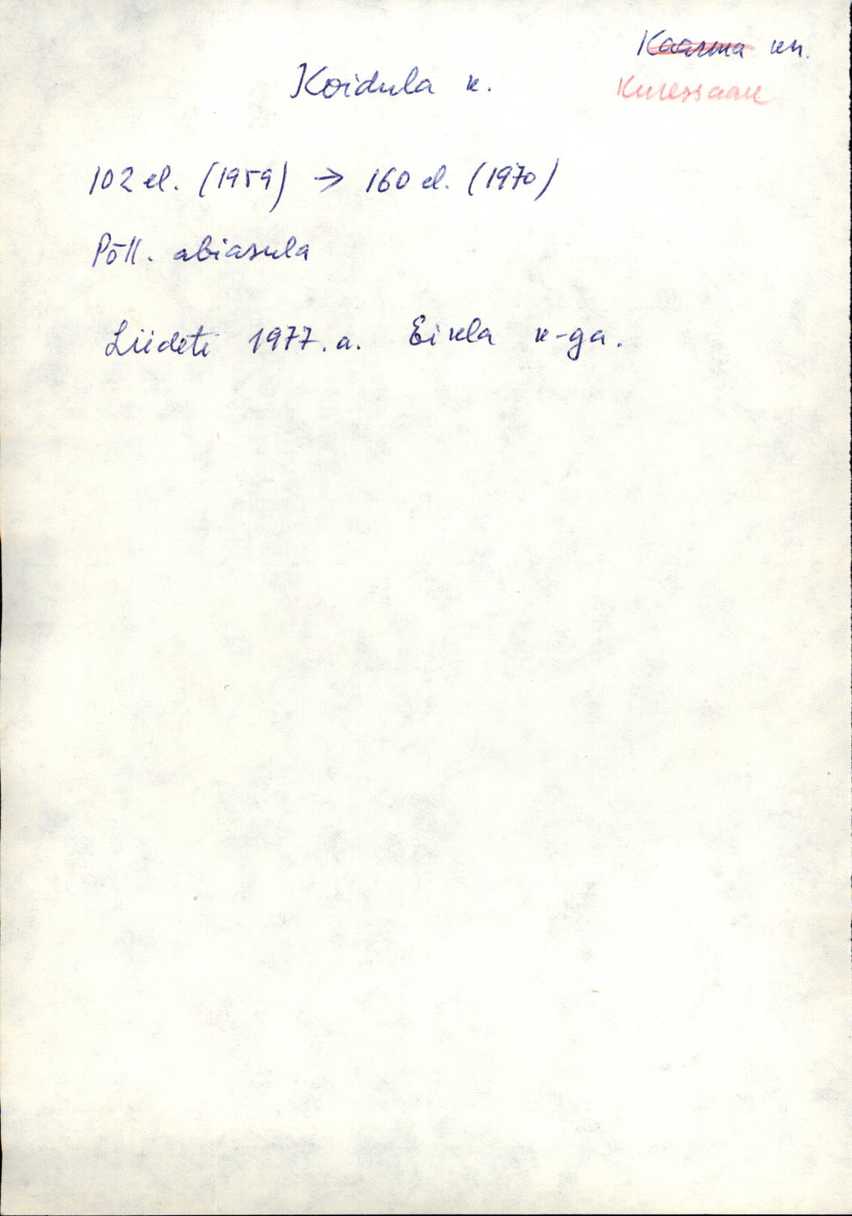 Kaarma kn.
Koidula k.
Kuressaare
102 el. (1959) → 160 el. (1970)
Põll. abiasula
Liideti 1977. a. Eikla k-ga.